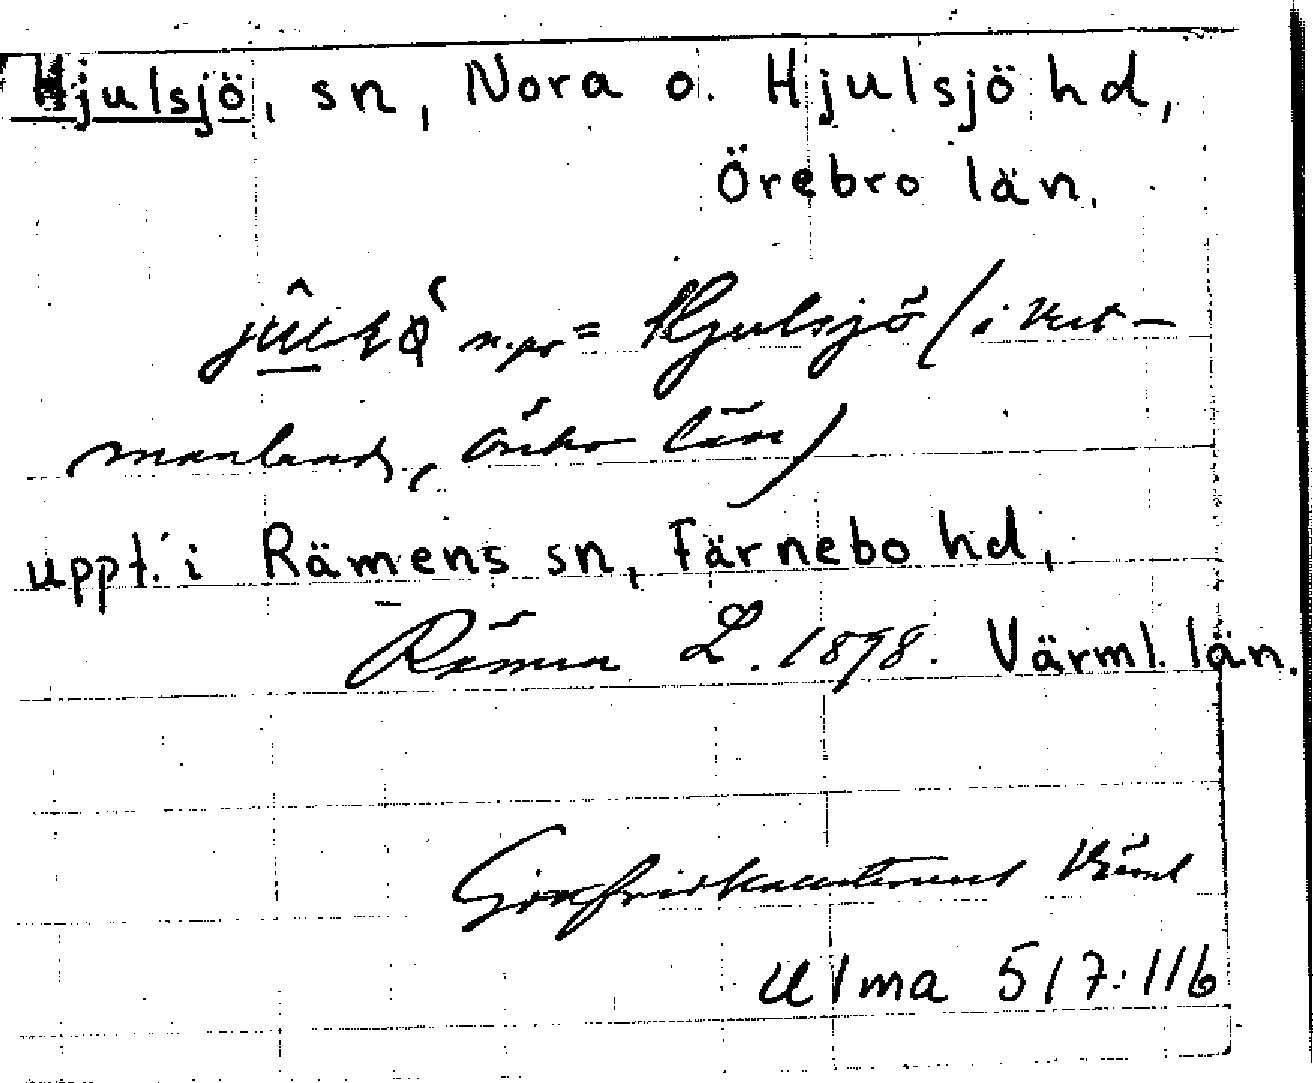 Hjulsjö, sn, Nora o. Hjulsjö hd,
Örebro län.
n.pr = Hjulsjö (i Vest-
manland, Örebro län)
uppt. i Rämens sn, Färnebo hd,
Rämen L. 1898. Värml. län.
Värml
Ulma 517:116